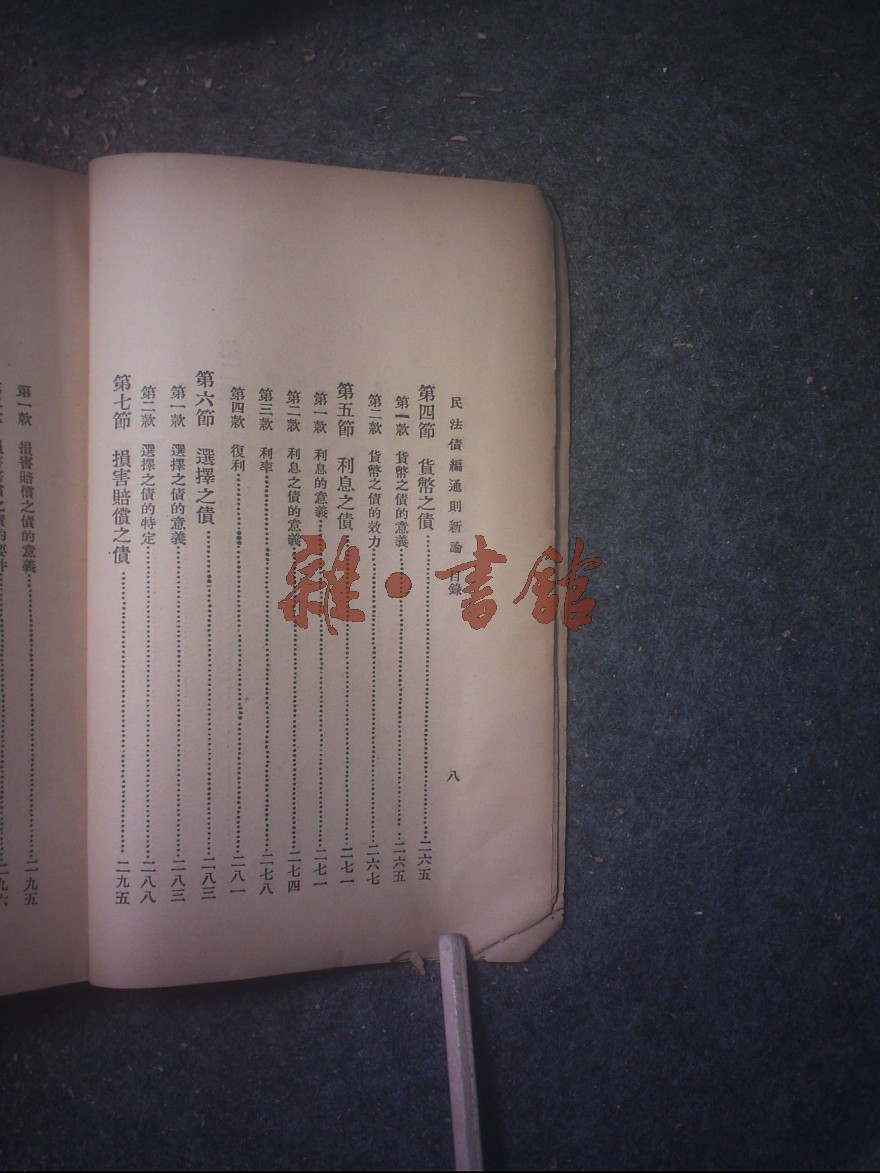 民法債編通則新論 目錄 八
第四節 貨幣之債……二六五
第一款 貨幣之債的意義……二六五
第二款 貨幣之債的效力……二六七
第五節 利息之債……二七一
第一款 利息的意義……二七一
第二款 利息之債的意義……二七四
第三款 利率……二七八
第四款 復利……二八一
第六節 選擇之債……二八三
第一款 選擇之債的意義……二八三
第二款 選擇之債的特定……二八八
第七節 損害賠償之債……二九五
第一款 損害賠償之債的意義……二九五
損害賠償之債的要件……二九六
雜·書館